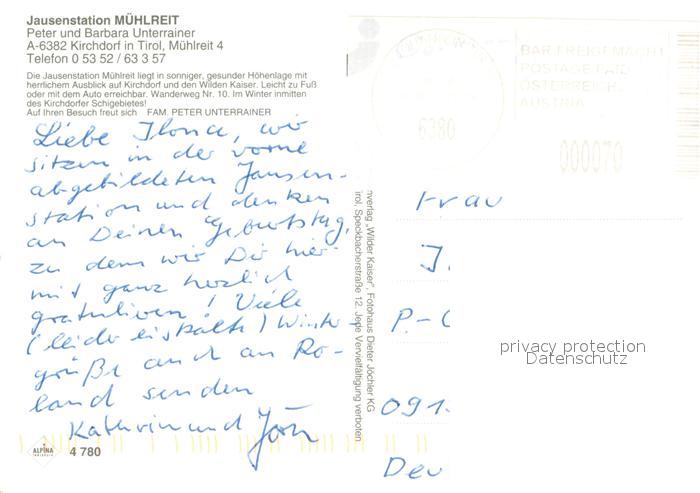 Jausenstation MÜHLREIT
Peter und Barbara Unterrainer
A-6382 Kirchdorf in Tirol, Mühlreit 4
Telefon 0 53 52 / 63 3 57
Die Jausenstation Mühlreit liegt in sonniger, gesunder Höhenlage mit
herrlichem Ausblick auf Kirchdorf und den Wilden Kaiser. Leicht zu Fuß
oder mit dem Auto erreichbar. Wanderweg Nr. 10. Im Winter inmitten
des Kirchdorfer Schigebietes!
Auf Ihren Besuch freut sich FAM. PETER UNTERRAINER
Liebe Ilona, wir
sitzen in der vorne
abgebildeten Jausen-
station und denken
an Deinen Geburtstag,
zu dem wir Dir hier-
mit ganz herzlich
gratulieren! Viele
(leider eiskalte) Winter-
grüße auch an Ro-
land senden
Kathrin und Jörn
ALPINA
4 780
nverlag „Wilder Kaiser", Fotohaus Dieter Jöchler KG
irol, Speckbacherstraße 12. Jede Vervielfältigung verboten.
6380
BAR FREIGEMACHT
POSTAGE PAID
ÖSTERREICH
AUSTRIA
000070
Frau
J.
P.-
091
Deu
privacy protection
Datenschutz